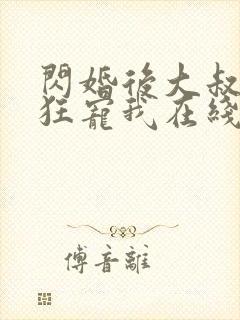 閃婚後大叔
狂寵我在綫
傅音離